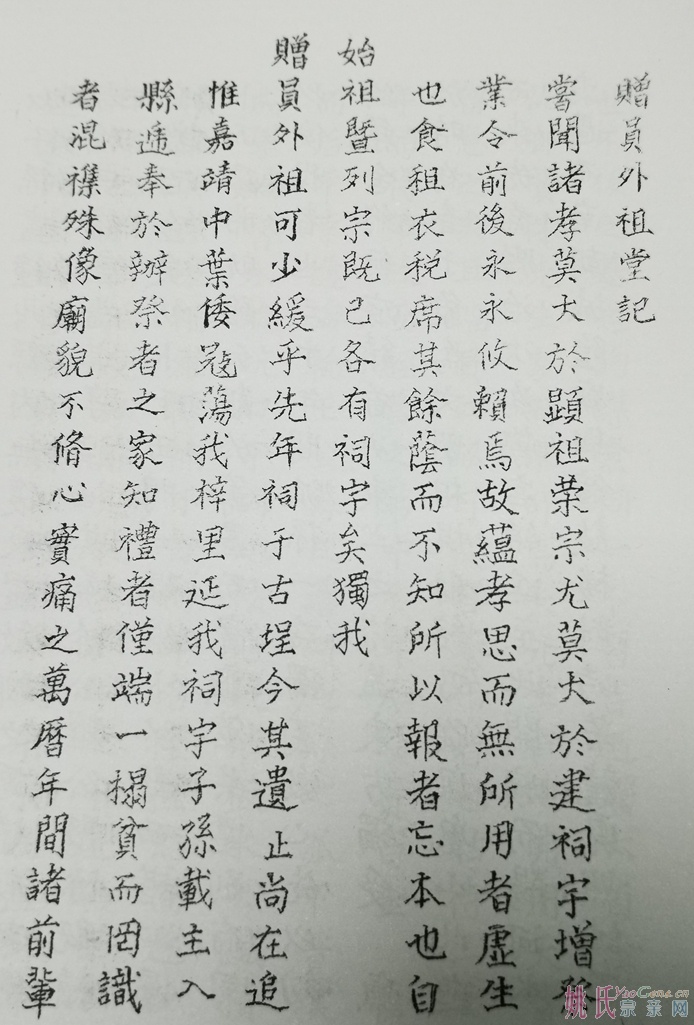 贈員外祖堂記
嘗聞諸孝莫大於顯祖荣宗尤莫大於建祠宇增祭
業令前後永永攸賴焉故蘊孝思而無所用者虛生
也食租衣税席其餘蔭而不知所以報者忘本也自
始祖暨列宗既已各有祠宇矣獨我
贈員外祖可少緩乎先年祠于古埕今其遺止尚在追
惟嘉靖中葉倭冦蕩我梓里延我祠宇子孫載主入
縣遞奉於辦祭者之家知禮者僅端一搨貧而罔識
者混襍殊像廟貌不脩心實痛之萬曆年間諸前輩
姚氏宗亲网
YaoGens.cn